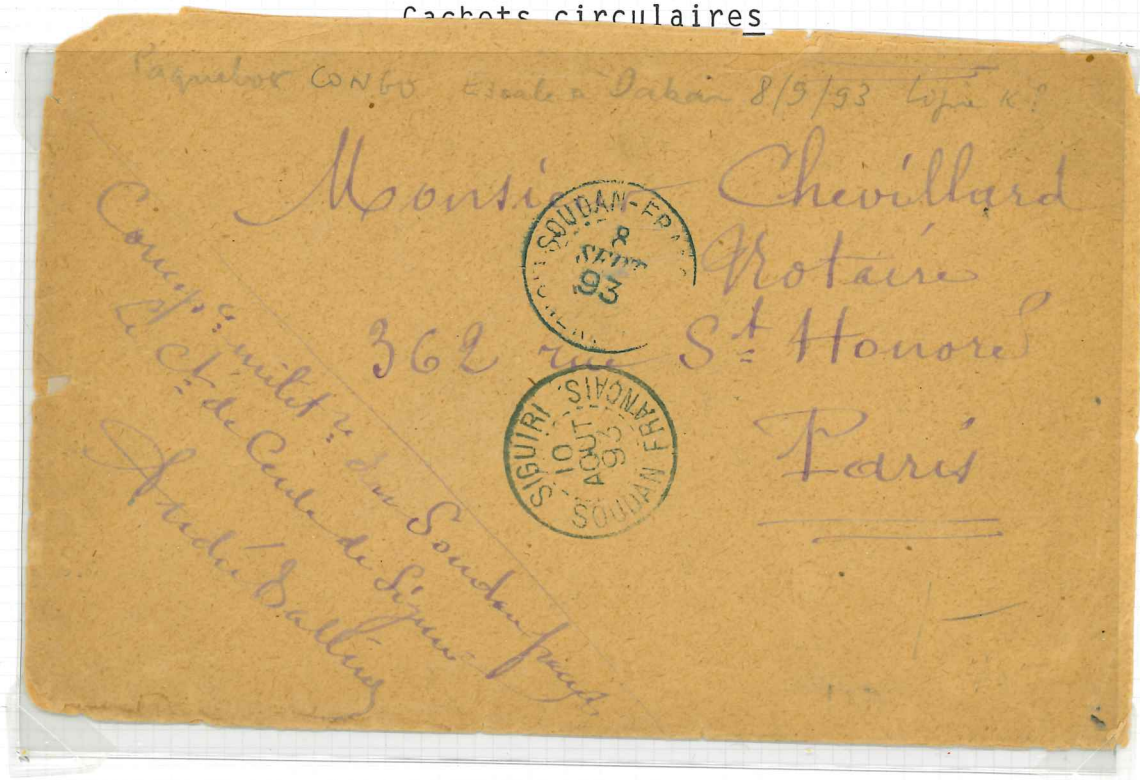 Cachets circulaires
Paquebot CONGO Escale à Dakar 8/9/93 ligne K?
Monsieur Chevillard
Notaire
362 rue St Honoré
Paris
SOUDAN-FRA
8
SEPT
93
SIGUIRI
SOUDAN FRANÇAIS.
10
AOUT
93
Corresp ce milit re du Soudan français
Le Ct de Cercle de Siguiri
André